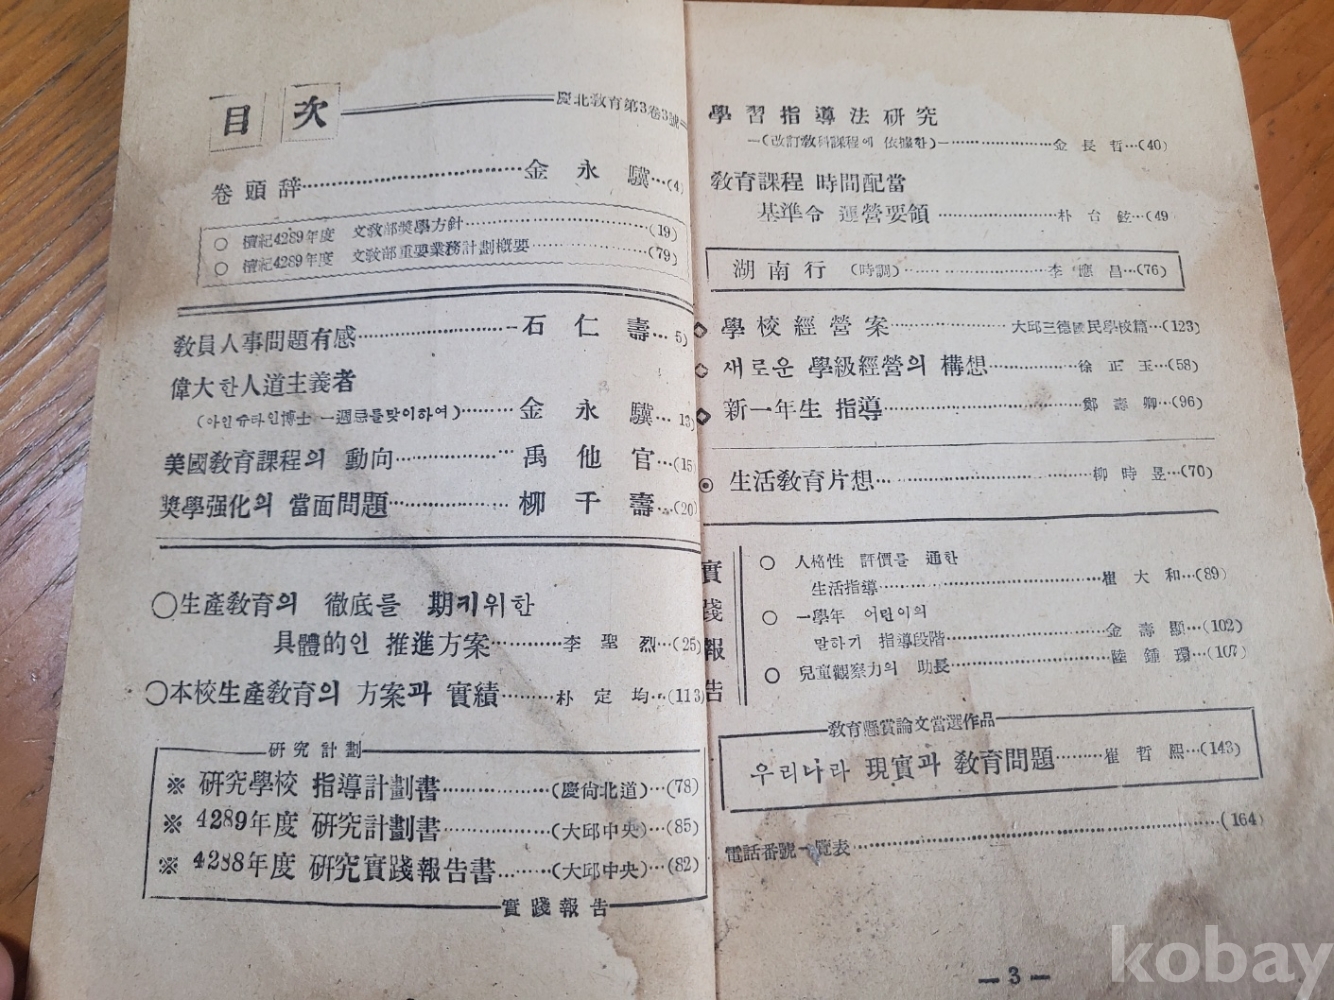 目次
慶北敎育第3卷3號
卷頭辞 金永驥 (4)
○ 檀紀4289年度 文敎部奬學方針 (19)
○ 檀紀4289年度 文敎部重要業務計劃槪要 (79)
敎員人事問題有感 石仁壽 5)
偉大한人道主義者
(아인슈타인博士 一週忌를맞이하여) 金永驥 13)
美國敎育課程의 動向 禹他官 (15)
奬學强化의 當面問題 柳千壽 (20)
○生產敎育의 徹底를 期키위한
具體的인 推進方案 李聖烈 (25)
○本校生產敎育의 方案과 實績 朴定均 (113)
硏究計劃
※ 硏究學校 指導計劃書 (慶尙北道) (78)
※ 4289年度 硏究計劃書 (大邱中央) (85)
※ 4288年度 硏究實踐報告書 (大邱中央) (82)
實踐報告
學習指導法硏究
(改訂敎科課程에 依據한) 金長哲 (40)
敎育課程 時間配當
基準令 運營要領 朴台鉉 (49
湖南行 (時調) 李應昌 (76)
◇ 學校經營案 大邱三德國民學校篇 (123)
◇ 새로운 學級經營의 構想 徐正玉 (58)
◇ 新一年生 指導 鄭壽卿 (96)
◉ 生活敎育片想 柳時昱 (70)
實踐報告
○ 人格性 評價를 通한
生活指導 崔大和 (89)
○ 一學年 어린이의
말하기 指導段階 金壽顯 (102)
○ 兒童觀察力의 助長 陸鍾環 (107)
敎育懸賞論文當選作品
우리나라 現實과 敎育問題 崔哲熙 (143)
電話番號一覽表 (164)
— 3 —
kobay